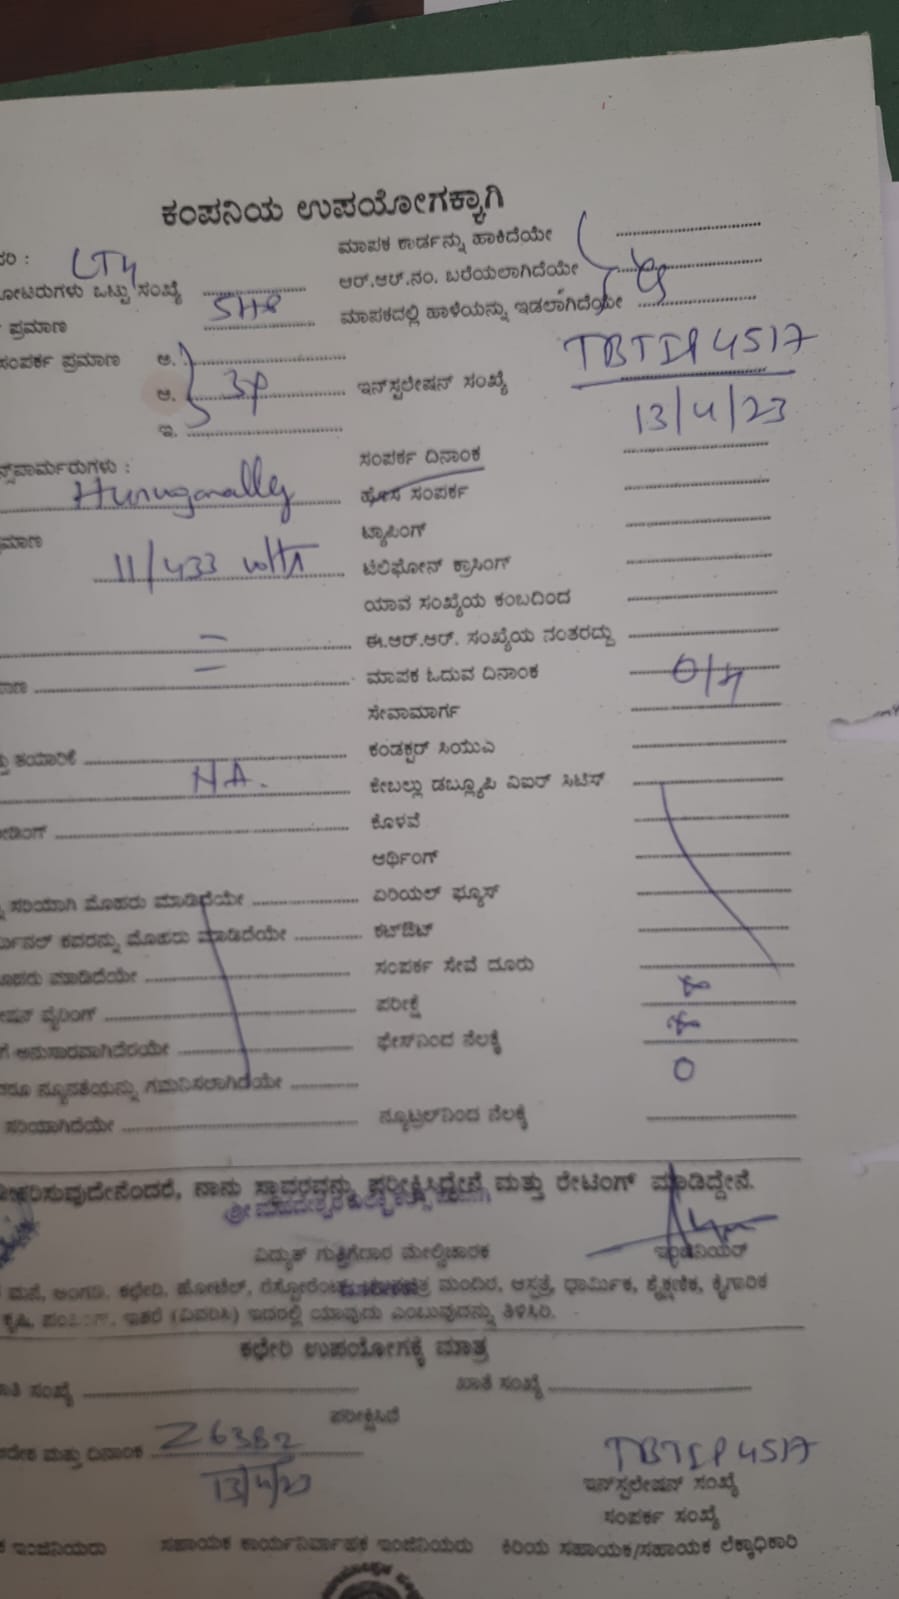 ಕಂಪನಿಯ ಉಪಯೋಗಕ್ಕಾಗಿ
LT4 ಮಾಪಕ ಕಾರ್ಡನ್ನು ಹಾಕಿದೆಯೇ
ಒಟ್ಟು ಸಂಖ್ಯೆ ಆರ್.ಆರ್.ನಂ. ಬರೆಯಲಾಗಿದೆಯೇ
ಪ್ರಮಾಣ 5HP ಮಾಪಕದಲ್ಲಿ ಹಾಳೆಯನ್ನು ಇಡಲಾಗಿದೆಯೇ
ಸಂಪರ್ಕ ಪ್ರಮಾಣ ಅ.
ಆ. 3P ಇನ್‌ಸ್ಟಲೇಷನ್ ಸಂಖ್ಯೆ TBTIP4517
ಇ. 13/4/23
ಸಂಪರ್ಕ ದಿನಾಂಕ
ಹೊಸ ಸಂಪರ್ಕ
ಟ್ಯಾಪಿಂಗ್
11/433 volts ಟೆಲಿಫೋನ್ ಕ್ರಾಸಿಂಗ್
ಯಾವ ಸಂಖ್ಯೆಯ ಕಂಬದಿಂದ
ಈ.ಆರ್.ಆರ್. ಸಂಖ್ಯೆಯ ನಂತರದ್ದು
ಮಾಪಕ ಓದುವ ದಿನಾಂಕ
ಸೇವಾಮಾರ್ಗ
ತಯಾರಿಕೆ ಕಂಡಕ್ಟರ್ ಸಿಯುಎ
NA. ಕೇಬಲ್ಲು ಡಬ್ಲ್ಯೂಪಿ ವಿಐರ್ ಸಿಟಿಸ್
ಕೊಳವೆ
ಆರ್ಥಿಂಗ್
ಸರಿಯಾಗಿ ಮೊಹರು ಮಾಡಿದೆಯೇ ಏರಿಯಲ್ ಫ್ಯೂಸ್
ಕವರನ್ನು ಮೊಹರು ಮಾಡಿದೆಯೇ ಕಟ್‌ಔಟ್
ಮಾಡಿದೆಯೇ ಸಂಪರ್ಕ ಸೇವೆ ದೂರು
ವೈರಿಂಗ್ ಪರೀಕ್ಷೆ
ಅನುಸಾರವಾಗಿದೆಯೇ ಫೇಸ್‌ನಿಂದ ನೆಲಕ್ಕೆ
ನ್ಯೂನತೆಯನ್ನು ಗಮನಿಸಲಾಗಿದೆಯೇ 0
ಸರಿಯಾಗಿದೆಯೇ ನ್ಯೂಟ್ರಲ್‌ನಿಂದ ನೆಲಕ್ಕೆ
ನಾನು ಸ್ಥಾವರವನ್ನು ಪರೀಕ್ಷಿಸಿದ್ದೇನೆ ಮತ್ತು ರೇಟಿಂಗ್ ಮಾಡಿದ್ದೇನೆ.
ವಿದ್ಯುತ್ ಗುತ್ತಿಗೆದಾರ ಮೇಲ್ವಿಚಾರಕ ಇಂಜಿನಿಯರ್
ಮನೆ, ಅಂಗಡಿ, ಕಛೇರಿ, ಹೋಟೆಲ್, ಮಂದಿರ, ಆಸ್ಪತ್ರೆ, ಧಾರ್ಮಿಕ, ಶೈಕ್ಷಣಿಕ, ಕೈಗಾರಿಕೆ
ಕೃಷಿ, ಇತರೆ (ವಿವರಿಸಿ) ಇದರಲ್ಲಿ ಯಾವುದು ಎಂಬುವುದನ್ನು ತಿಳಿಸಿರಿ.
ಕಛೇರಿ ಉಪಯೋಗಕ್ಕೆ ಮಾತ್ರ
ಸಂಖ್ಯೆ ಖಾತೆ ಸಂಖ್ಯೆ
ಪರೀಕ್ಷಿಸಿದೆ
ಮತ್ತು ದಿನಾಂಕ 26382 TBTIP4517
13/4/23 ಇನ್‌ಸ್ಟಲೇಷನ್ ಸಂಖ್ಯೆ
ಸಂಪರ್ಕ ಸಂಖ್ಯೆ
ಇಂಜಿನಿಯರು ಸಹಾಯಕ ಕಾರ್ಯನಿರ್ವಾಹಕ ಇಂಜಿನಿಯರು ಕಿರಿಯ ಸಹಾಯಕ/ಸಹಾಯಕ ಲೆಕ್ಕಾಧಿಕಾರಿ